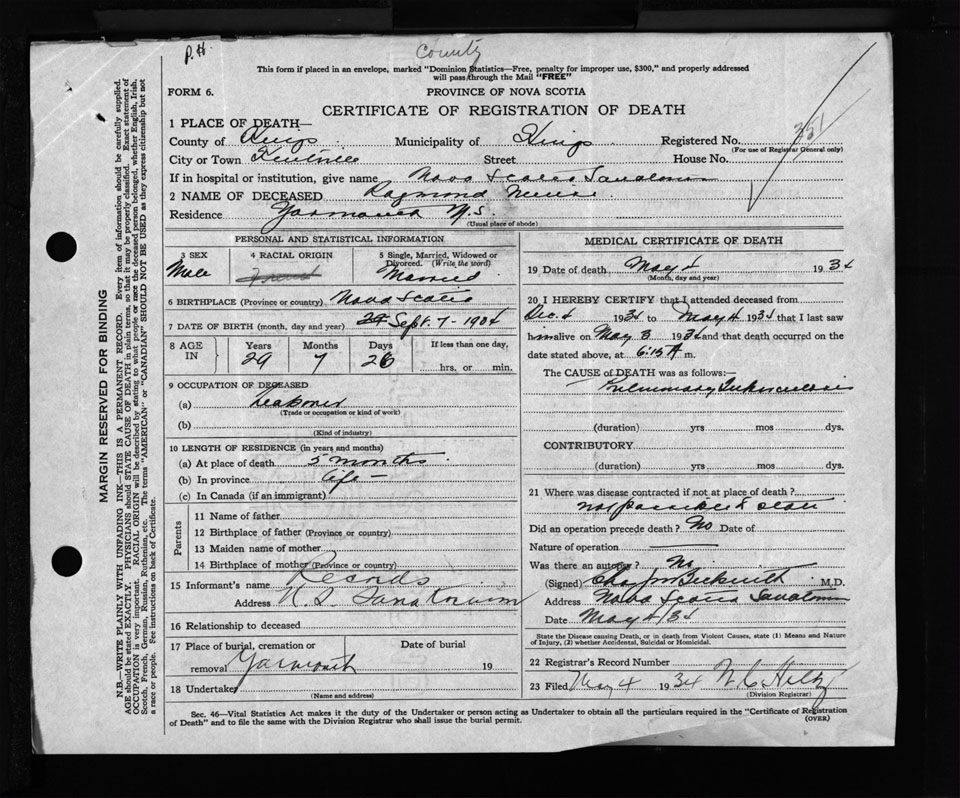 P.H.
County
This form if placed in an envelope, marked "Dominion Statistics—Free, penalty for improper use, $300," and properly addressed
will pass through the Mail "FREE"
FORM 6. PROVINCE OF NOVA SCOTIA
CERTIFICATE OF REGISTRATION OF DEATH
351
1 PLACE OF DEATH—
County of Kings Municipality of Kings Registered No.
(For use of Registrar General only)
City or Town Kentville Street House No.
If in hospital or institution, give name Nova Scotia Sanatorium
2 NAME OF DECEASED Raymond
Residence Yarmouth N.S.
(Usual place of abode)
PERSONAL AND STATISTICAL INFORMATION
3 SEX 4 RACIAL ORIGIN 5 Single, Married, Widowed or
Divorced. (Write the word)
Male French Married
6 BIRTHPLACE (Province or country) Nova Scotia
7 DATE OF BIRTH (month, day and year) Sept. 7 - 1904
8 AGE IN Years Months Days If less than one day,
29 7 26 hrs. or min.
9 OCCUPATION OF DECEASED
(a)
(Trade or occupation or kind of work)
(b)
(Kind of industry)
10 LENGTH OF RESIDENCE (in years and months)
(a) At place of death 5 months
(b) In province Life —
(c) In Canada (if an immigrant)
Parents
11 Name of father
12 Birthplace of father (Province or country)
13 Maiden name of mother
14 Birthplace of mother (Province or country)
15 Informant's name Records
Address N.S. Sanatorium
16 Relationship to deceased
17 Place of burial, cremation or Date of burial
removal Yarmouth 19
18 Undertaker
(Name and address)
MEDICAL CERTIFICATE OF DEATH
19 Date of death May 4 1934
(Month, day and year)
20 I HEREBY CERTIFY that I attended deceased from
Dec. 4 193 to May 4 1934 that I last saw
him alive on May 3 1934 and that death occurred on the
date stated above, at 6:15 A m.
The CAUSE of DEATH was as follows:—
Pulmonary Tuberculosis
(duration) yrs mos dys.
CONTRIBUTORY
(duration) yrs mos dys.
21 Where was disease contracted if not at place of death?
Not possible to state
Did an operation precede death? No Date of
Nature of operation
Was there an autopsy? No
(Signed) Beckwith M.D.
Address Nova Scotia Sanatorium
Date May 4/34
State the Disease causing Death, or in death from Violent Causes, state (1) Means and Nature
of Injury, (2) whether Accidental, Suicidal or Homicidal.
22 Registrar's Record Number
23 Filed May 4 1934
(Division Registrar)
Sec. 46—Vital Statistics Act makes it the duty of the Undertaker or person acting as Undertaker to obtain all the particulars required in the "Certificate of Registration
of Death" and to file the same with the Division Registrar who shall issue the burial permit. (OVER)
MARGIN RESERVED FOR BINDING
N.B.—WRITE PLAINLY WITH UNFADING INK—THIS IS A PERMANENT RECORD. Every item of information should be carefully supplied.
AGE should be stated EXACTLY. PHYSICIANS should STATE CAUSE OF DEATH in plain terms, so that it may be properly classified. Exact statement of
OCCUPATION is very important. RACIAL ORIGIN will be described by stating to what people or race the deceased person belonged, whether English, Irish,
Scotch, French, German, Russian, Ruthenian, etc. The terms "AMERICAN" or "CANADIAN" SHOULD NOT BE USED as they express citizenship but not
a race or people. See instructions on back of Certificate.